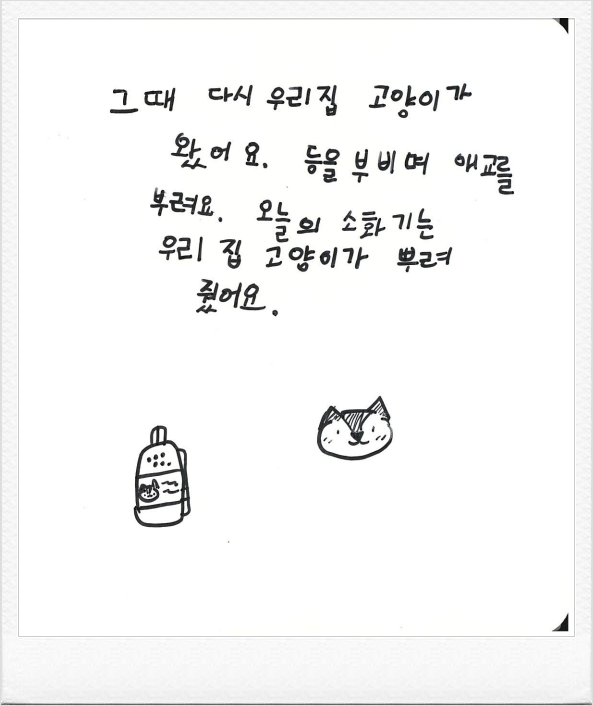 그때 다시 우리집 고양이가
왔어요. 등을 부비며 애교를
부려요. 오늘의 소화기는
우리 집 고양이가 뿌려
줬어요.